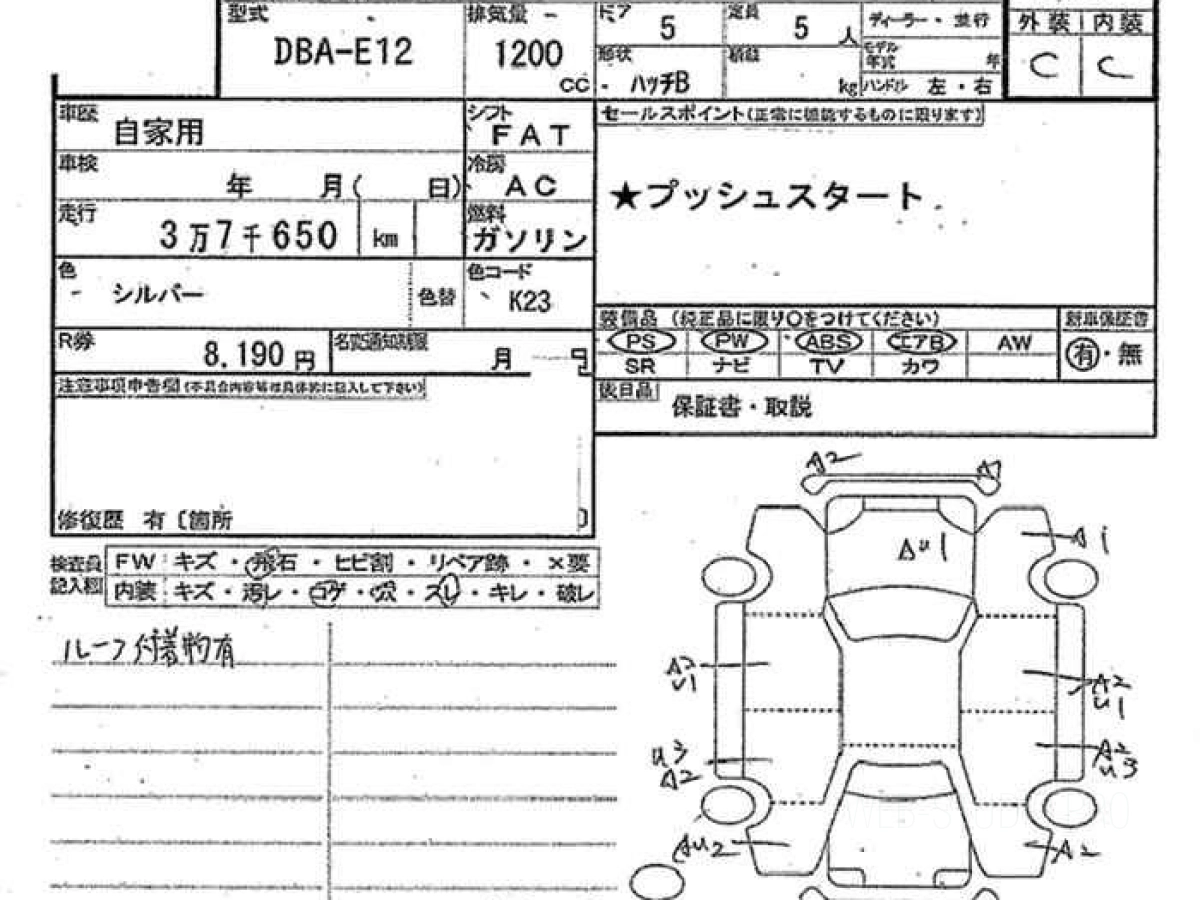 型式 排気量 ドア 定員 ディーラー・並行 外装 内装
DBA-E12 1200 cc 5 5 人
形状 積載 モデル年式 年 C C
ハッチB kg ハンドル 左・右
車歴 自家用 シフト FAT セールスポイント(正常に機能するものに限ります)
車検 年 月( 日) 冷房 AC ★プッシュスタート
走行 3万7千650 km 燃料 ガソリン
色 シルバー 色替 色コード K23
装備品 (純正品に限り○をつけてください) 新車保証書
R券 8,190円 名変通知期限 月 PS PW ABS エアB AW 有・無
SR ナビ TV カワ
注意事項申告欄(不具合内容等は具体的に記入して下さい)
後日品 保証書・取説
修復歴 有〔箇所
検査員記入欄
FW キズ・飛石・ヒビ割・リペア跡・×要
内装 キズ・汚レ・コゲ・穴・スレ・キレ・破レ
ルーフ付着物有
A2
AU1
A1
A2 U1
A2 U1
U3 A2
A2 U3
AU2
A2